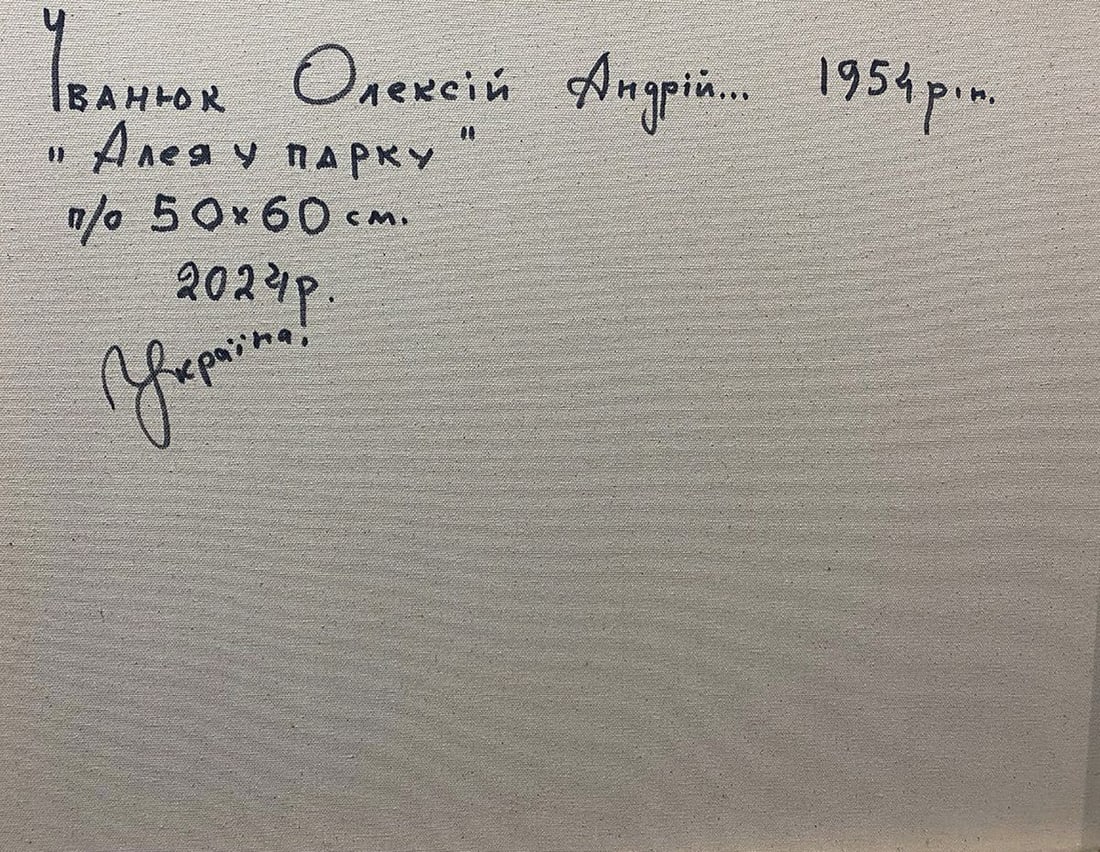 Іванюк Олексій Андрій... 1954 р.н.
"Алея у парку"
п/о 50x60 см.
2024р.
Україна.